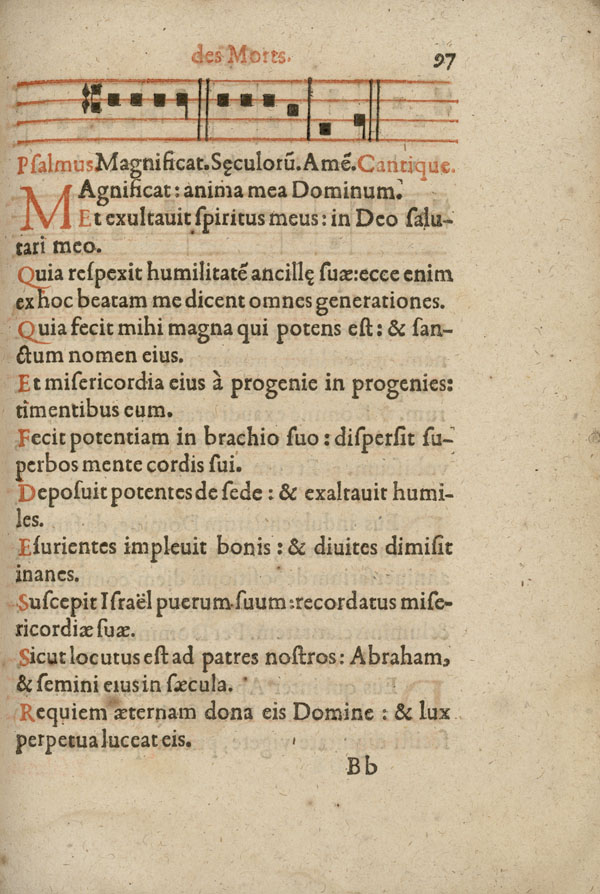 des Morts. 97
Psalmus. Magnificat. Sęculorũ. Amẽ. Cantique.
MAgnificat: anima mea Dominum.
Et exultauit ſpiritus meus: in Deo ſalu-
tari meo.
Quia reſpexit humilitatẽ ancillę ſuæ: ecce enim
ex hoc beatam me dicent omnes generationes.
Quia fecit mihi magna qui potens eſt: & ſan-
ctum nomen eius.
Et miſericordia eius à progenie in progenies:
timentibus eum.
Fecit potentiam in brachio ſuo: diſperſit ſu-
perbos mente cordis ſui.
Depoſuit potentes de ſede: & exaltauit humi-
les.
Eſurientes impleuit bonis: & diuites dimiſit
inanes.
Suſcepit Iſraël puerum ſuum: recordatus miſe-
ricordiæ ſuæ.
Sicut locutus eſt ad patres noſtros: Abraham,
& ſemini eius in ſæcula.
Requiem æternam dona eis Domine: & lux
perpetua luceat eis.
Bb